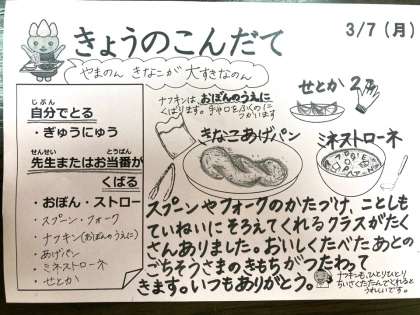 きょうのこんだて
3/7(月)
やまのん きなこが 大すきなのん
じぶん
自分でとる
・ぎゅうにゅう
せんせい とうばん
先生またはお当番が
くばる
・おぼん・ストロー
・スプーン・フォーク
・ナフキン(おぼんのうえに)
・あげパン
・ミネストローネ
・せとか
ナフキンは、おぼんのうえに
くばります。手や口をふくのに
つかいます
せとか 2
きなこあげパン
ミネストローネ
スプーンやフォークのかたづけ、ことしも
ていねいにそろえてくれるクラスがたく
さんありました。おいしくたべたあとの
ごちそうさまのきもちがつたわって
きます。いつもありがとう。
ナフキンも、ひとりひとり
ちいさくたたんでくれると
うれしいです。